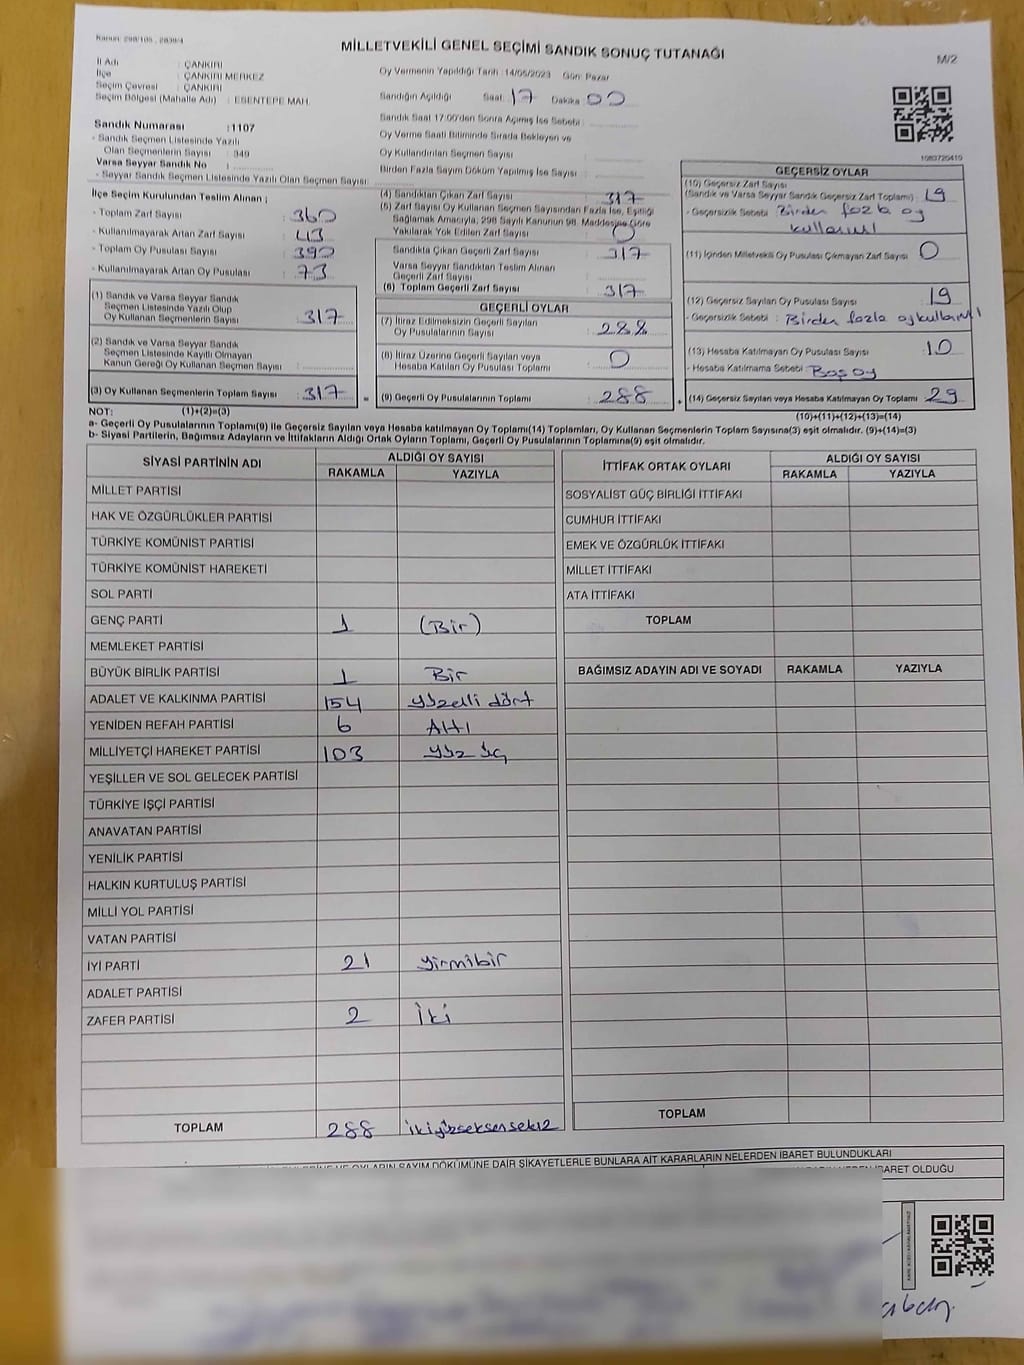 Kanun: 298/105 , 2839/4
MİLLETVEKİLİ GENEL SEÇİMİ SANDIK SONUÇ TUTANAĞI
M/2
İl Adı : ÇANKIRI
İlçe : ÇANKIRI MERKEZ
Seçim Çevresi : ÇANKIRI
Seçim Bölgesi (Mahalle Adı) : ESENTEPE MAH.
Oy Vermenin Yapıldığı Tarih :14/05/2023 Gün: Pazar
Sandığın Açıldığı Saat: 17 Dakika: 00
Sandık Saat 17:00'den Sonra Açılmış İse Sebebi :
Oy Verme Saati Bitiminde Sırada Bekleyen ve
Oy Kullandırılan Seçmen Sayısı
Birden Fazla Sayım Döküm Yapılmış İse Sayısı :
Sandık Numarası :1107
- Sandık Seçmen Listesinde Yazılı
Olan Seçmenlerin Sayısı : 349
Varsa Seyyar Sandık No :
- Seyyar Sandık Seçmen Listesinde Yazılı Olan Seçmen Sayısı:
1083720410
İlçe Seçim Kurulundan Teslim Alınan ;
- Toplam Zarf Sayısı : 360
- Kullanılmayarak Artan Zarf Sayısı : 43
- Toplam Oy Pusulası Sayısı : 390
- Kullanılmayarak Artan Oy Pusulası : 73
(1) Sandık ve Varsa Seyyar Sandık
Seçmen Listesinde Yazılı Olup
Oy Kullanan Seçmenlerin Sayısı : 317
(2) Sandık ve Varsa Seyyar Sandık
Seçmen Listesinde Kayıtlı Olmayan
Kanun Gereği Oy Kullanan Seçmen Sayısı :
(3) Oy Kullanan Seçmenlerin Toplam Sayısı : 317
(4) Sandıktan Çıkan Zarf Sayısı : 317
(5) Zarf Sayısı Oy Kullanan Seçmen Sayısından Fazla İse, Eşitliği
Sağlamak Amacıyla, 298 Sayılı Kanunun 98. Maddesine Göre
Yakılarak Yok Edilen Zarf Sayısı : 0
Sandıkta Çıkan Geçerli Zarf Sayısı : 317
Varsa Seyyar Sandıktan Teslim Alınan
Geçerli Zarf Sayısı :
(6) Toplam Geçerli Zarf Sayısı : 317
GEÇERLİ OYLAR
(7) İtiraz Edilmeksizin Geçerli Sayılan
Oy Pusulasının Toplamı : 288
(8) İtiraz Üzerine Geçerli Sayılan veya
Hesaba Katılan Oy Pusulası Toplamı : 0
= (9) Geçerli Oy Pusulalarının Toplamı : 288
GEÇERSİZ OYLAR
(10) Geçersiz Zarf Sayısı
(Sandık ve Varsa Seyyar Sandık Geçersiz Zarf Toplamı) : 19
- Geçersizlik Sebebi : Birden fazla oy
kullanımı
(11) İçinden Milletvekili Oy Pusulası Çıkmayan Zarf Sayısı : 0
(12) Geçersiz Sayılan Oy Pusulası Sayısı : 19
- Geçersizlik Sebebi : Birden fazla oy kullanımı
(13) Hesaba Katılmayan Oy Pusulası Sayısı : 10
- Hesaba Katılmama Sebebi : Boş oy
+ (14) Geçersiz Sayılan veya Hesaba Katılmayan Oy Toplamı : 29
NOT: (1)+(2)=(3)
(10)+(11)+(12)+(13)=(14)
a- Geçerli Oy Pusulalarının Toplamı(9) İle Geçersiz Sayılan veya Hesaba katılmayan Oy Toplamı(14) Toplamları, Oy Kullanan Seçmenlerin Toplam Sayısına(3) eşit olmalıdır. (9)+(14)=(3)
b- Siyasi Partilerin, Bağımsız Adayların ve İttifakların Aldığı Ortak Oyların Toplamı, Geçerli Oy Pusulalarının Toplamına(9) eşit olmalıdır.
SİYASİ PARTİNİN ADI ALDIĞI OY SAYISI
RAKAMLA YAZIYLA
MİLLET PARTİSİ
HAK VE ÖZGÜRLÜKLER PARTİSİ
TÜRKİYE KOMÜNİST PARTİSİ
TÜRKİYE KOMÜNİST HAREKETİ
SOL PARTİ
GENÇ PARTİ 1 (Bir)
MEMLEKET PARTİSİ
BÜYÜK BİRLİK PARTİSİ 1 Bir
ADALET VE KALKINMA PARTİSİ 154 yüzelli dört
YENİDEN REFAH PARTİSİ 6 Altı
MİLLİYETÇİ HAREKET PARTİSİ 103 yüz üç
YEŞİLLER VE SOL GELECEK PARTİSİ
TÜRKİYE İŞÇİ PARTİSİ
ANAVATAN PARTİSİ
YENİLİK PARTİSİ
HALKIN KURTULUŞ PARTİSİ
MİLLİ YOL PARTİSİ
VATAN PARTİSİ
İYİ PARTİ 21 yirmibir
ADALET PARTİSİ
ZAFER PARTİSİ 2 İki
TOPLAM 288 ikiyüzseksensekiz
İTTİFAK ORTAK OYLARI ALDIĞI OY SAYISI
RAKAMLA YAZIYLA
SOSYALİST GÜÇ BİRLİĞİ İTTİFAKI
CUMHUR İTTİFAKI
EMEK VE ÖZGÜRLÜK İTTİFAKI
MİLLET İTTİFAKI
ATA İTTİFAKI
TOPLAM
BAĞIMSIZ ADAYIN ADI VE SOYADI RAKAMLA YAZIYLA
TOPLAM
OYLARIN SAYIM DÖKÜMÜNE DAİR ŞİKAYETLERLE BUNLARA AİT KARARLARIN NELERDEN İBARET BULUNDUKLARI
İBARET OLDUĞU